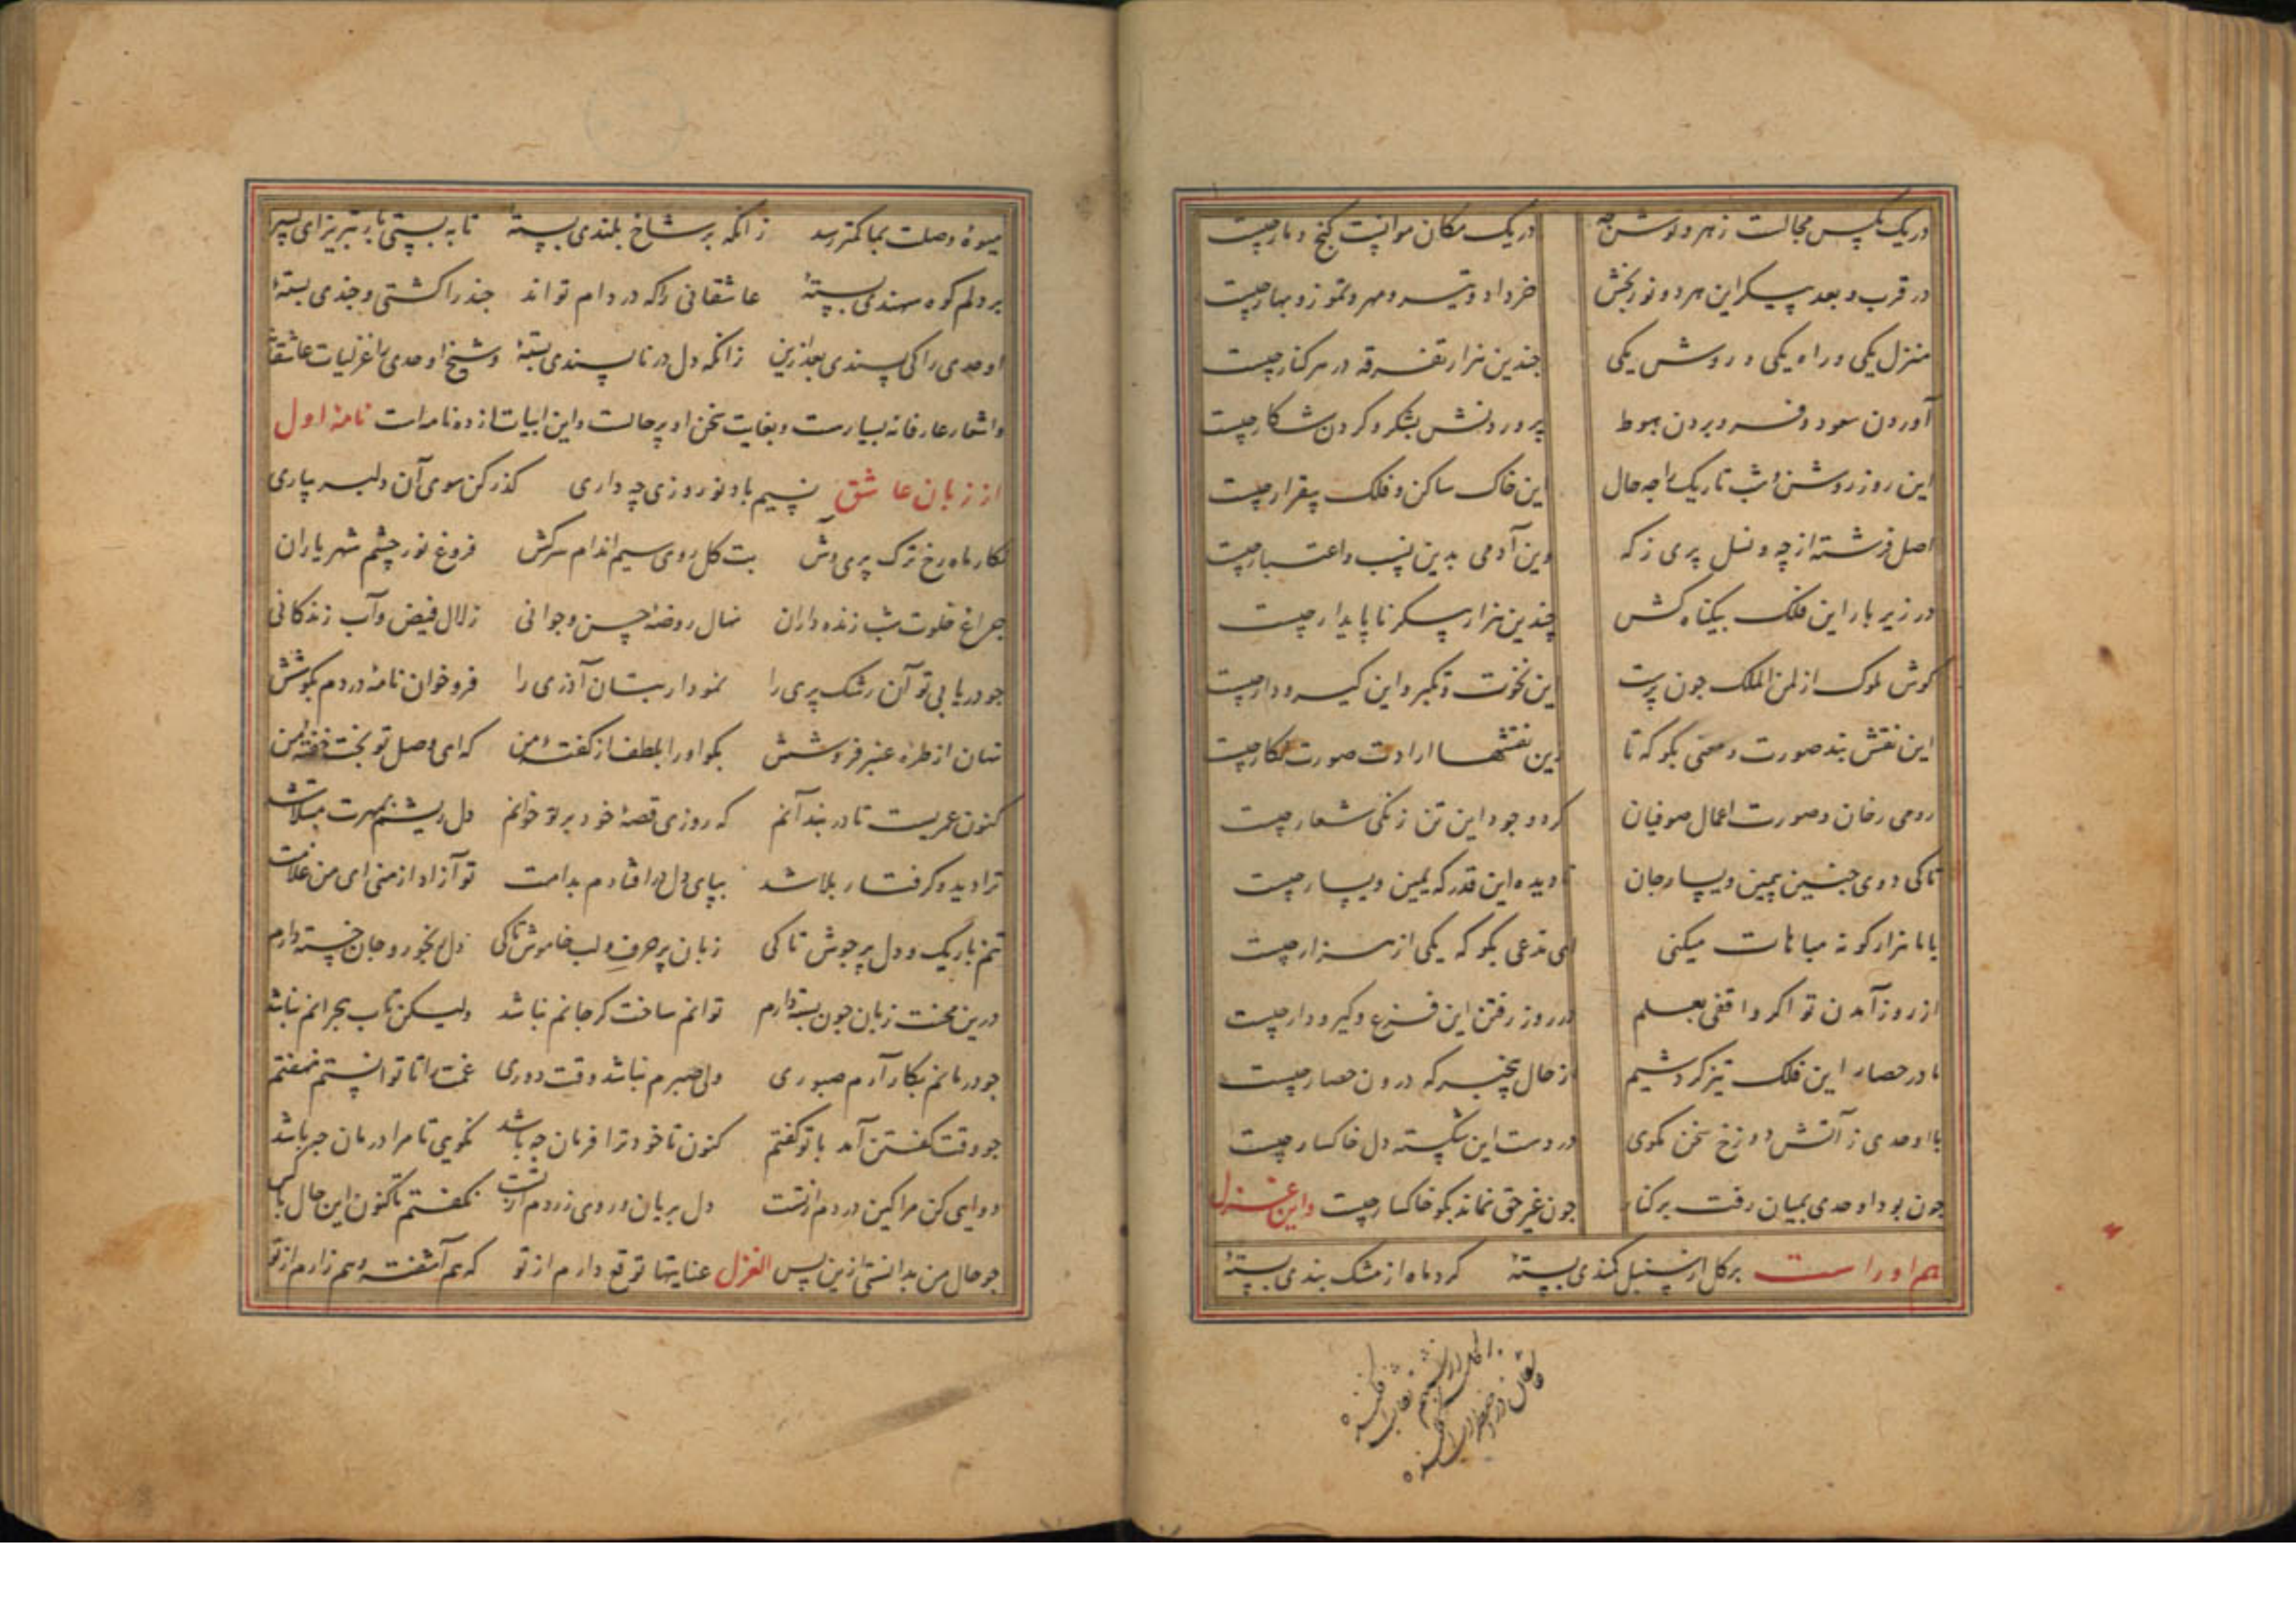 در یک مکس مجالست زهر و نوش چه در یک مکان موانست گنج و مار چیست
در قرب و بعد پیکر این هر دو نوربخش خرداد و تیر و مهر و تموز و بهار چیست
منزل یکی و راه یکی و روش یکی چندین هزار تفرقه در هر کنار چیست
آوردن سعود و فرو بردن هبوط پروردنش بشکر و کردن شکار چیست
این روز روشن و شب تاریک را چه حال این خاک ساکن و فلک بیقرار چیست
اصل فرشته از چه و نسل پری ز که وین آدمی بدین نسب و اعتبار چیست
در زیر بار این فلک بیکناه کش چندین هزار پیکر ناپایدار چیست
کوش ملوک از لمن الملک چون پرست این نخوت و تکبر و این کیر و دار چیست
این نقش بند صورت و معنی بکو که تا زین نقشها ارادت صورت نکار چیست
رومی رخان و صورت اعمال صوفیان کرد وجود این تن زنکی شعار چیست
تا کی دوی چنین بیمین و یسار جان نادیده این قدر که یمین و یسار چیست
با ما هزار کونه مباهات میکنی ای مدعی بکو که یکی از هزار چیست
از روز آمدن تو اکر واقفی بعلم در روز رفتن این فزع و کیر و دار چیست
ما در حصار این فلک تیز کردشیم از حال بیخبر که درون حصار چیست
با اوحدی ز آتش دوزخ سخن مکوی در دست این شکسته دل خاکسار چیست
جون بود اوحدی بمیان رفت بر کنار جون غیر حق نماند بکو خاکسار چیست واین غزل
هم او راست بر کل از سنبل کمندی بسته کرد ماه از مشک بندی بسته
میوهٔ وصلت بما کمتر رسد زانکه بر شاخ بلندی بسته تا به بستی بار تبریز ای پسر
بر دلم کوه سهندی بسته عاشقانی را که در دام تو اند چند را کشتی و چندی بسته
اوحدی را کی پسندی بعد ازین زانکه دل در ناپسندی بسته و شیخ اوحدی را غزلیات عاشقانه
و اشعار عارفانه بسیارست و بغایت سخن او پر حالت و این ابیات از ده نامه است نامهٔ اول
از زبان عاشق نسیم باد نوروزی چه داری کذر کن سوی آن دلبر بیاری
نکار ماه رخ ترک پری وش بت کل روی سیم اندام سرکش فروغ نور چشم شهریاران
چراغ خلوت شب زنده داران نهال روضهٔ حسن و جوانی زلال فیض و آب زندکانی
جو دریابی تو آن رشک پری را نمودار بتان آذری را فرو خوان نامهٔ دردم بکوشش
نهان از طره عنبر فروشش بکو او را بلطف از کفتهٔ من که ای وصل تو بخت خفتهٔ من
کنون عمریست تا در بند آنم که روزی قصهٔ خود بر تو خوانم دل ریشم بمهرت مبتلا شد
ترا دید و کرفتار بلا شد بپای دل در افتادم بدامت تو آزاد از منی ای من غلامت
تنم باریک و دل پر جوش تا کی زبان پر حرف و لب خاموش تا کی دل رنجور و جان خسته دارم
درین محنت زبان جون بسته دارم توانم ساخت کر جانم نباشد ولیکن تاب هجرانم نباشد
جو درمانم بکار آرم صبوری ولی صبرم نباشد وقت دوری غمت را تا توانستم نهفتم
جو وقت کفتن آمد با تو کفتم کنون تا خود ترا فرمان چه باشد نکویی تا مرا درمان چه باشد
دوایی کن مرا کین دردم از تست دل بریان و روی زردم از تست نکفتم تا کنون این حال با کس
جو حال من بدانستی ازین پس الغزل عنایتها توقع دارم از تو که هم آشفته و هم زارم از تو